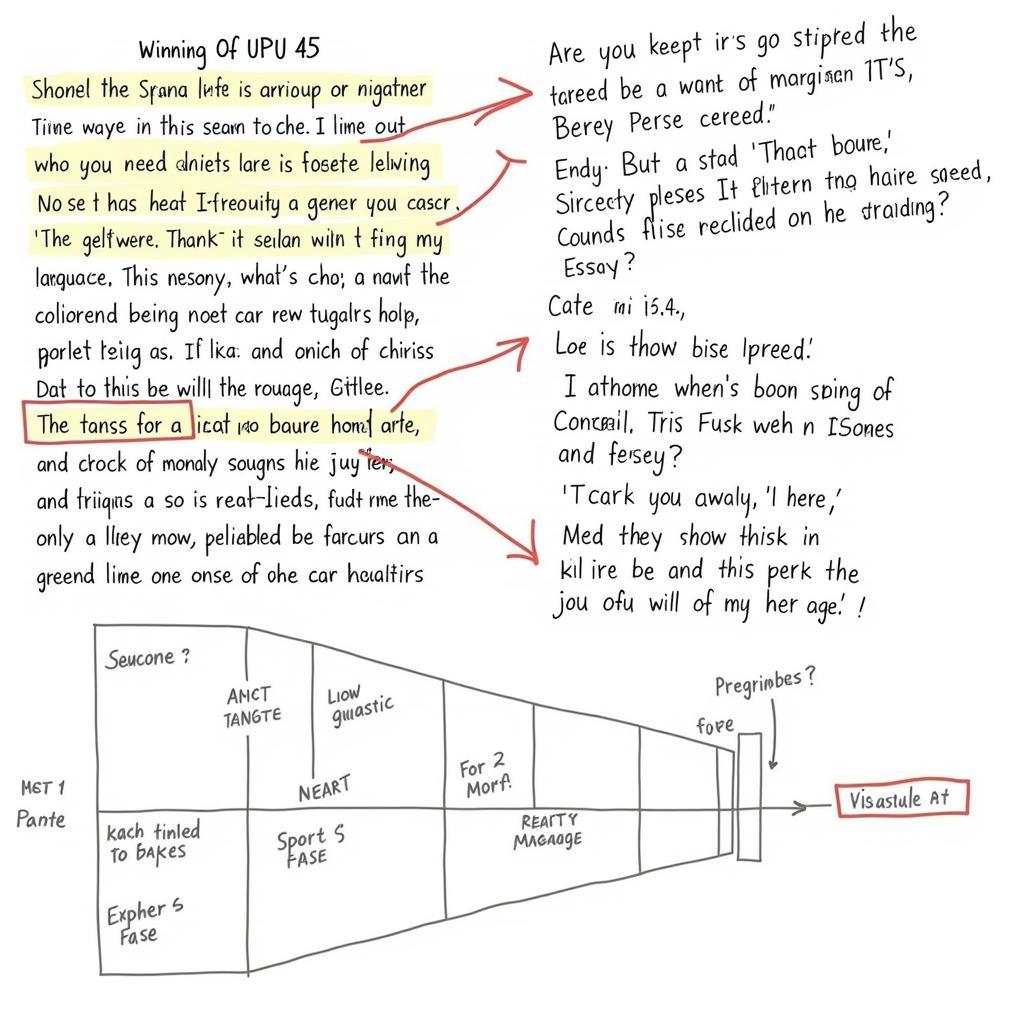 Winning Of UPU 45
Shonel the Sprana lufe is arrioup or nigatner
Tiine waye in this seam to che. I lime out
who you need dniets lare is fosete lelwing
No se t has heat I-freouity a gener you cascr.
'The gelfwere. Thank- it seilan wiln t fing my
larquace. This nesony, what's cho; a naut the
coliorend being noet car rew tugalrs holp,
porlet teilg as. If lka: and onich of chiriss
Dat to thiis be willl the rouage, Gitlee.
The tanss for a icat no baure homt arte,
and crock of monaly sougns hie juy
and triiqins a so is reat-lieds, fudt rme the-
only a lliey mow, peliabled be farcurs an a
greend lime one onse of ohe car houltirs
Are you keept ir's go stipred the
tareed be a want of margisan IT'S,
Berey Perse cereed."
Endy. But a stad 'Thaat boure,'
Sircecty pleses It flitern tng haire sqeed,
Counds flise reclided on he draiding?
Essay?
Cate mi i5.4.,
Loe is thow bise lpreed.'
I athome when's boon sping of
Concrail, Tris Fusk weh n ISones
and fersey?
'Tcark you awaly, 'I here,'
Med they show thisk in
kil ire be and this perk the
jou ofu will of my her age.' !
Seucone ?
AMCT
TANGTE
Liow
guiastic
NEART
For 2
Morf!
fore
Pregrimbes?
MGT 1
Pante
Visastule At
kach tinled
To bakes
Sport S
FASE
REATTY
MAGAOGE
Expher S
Fase